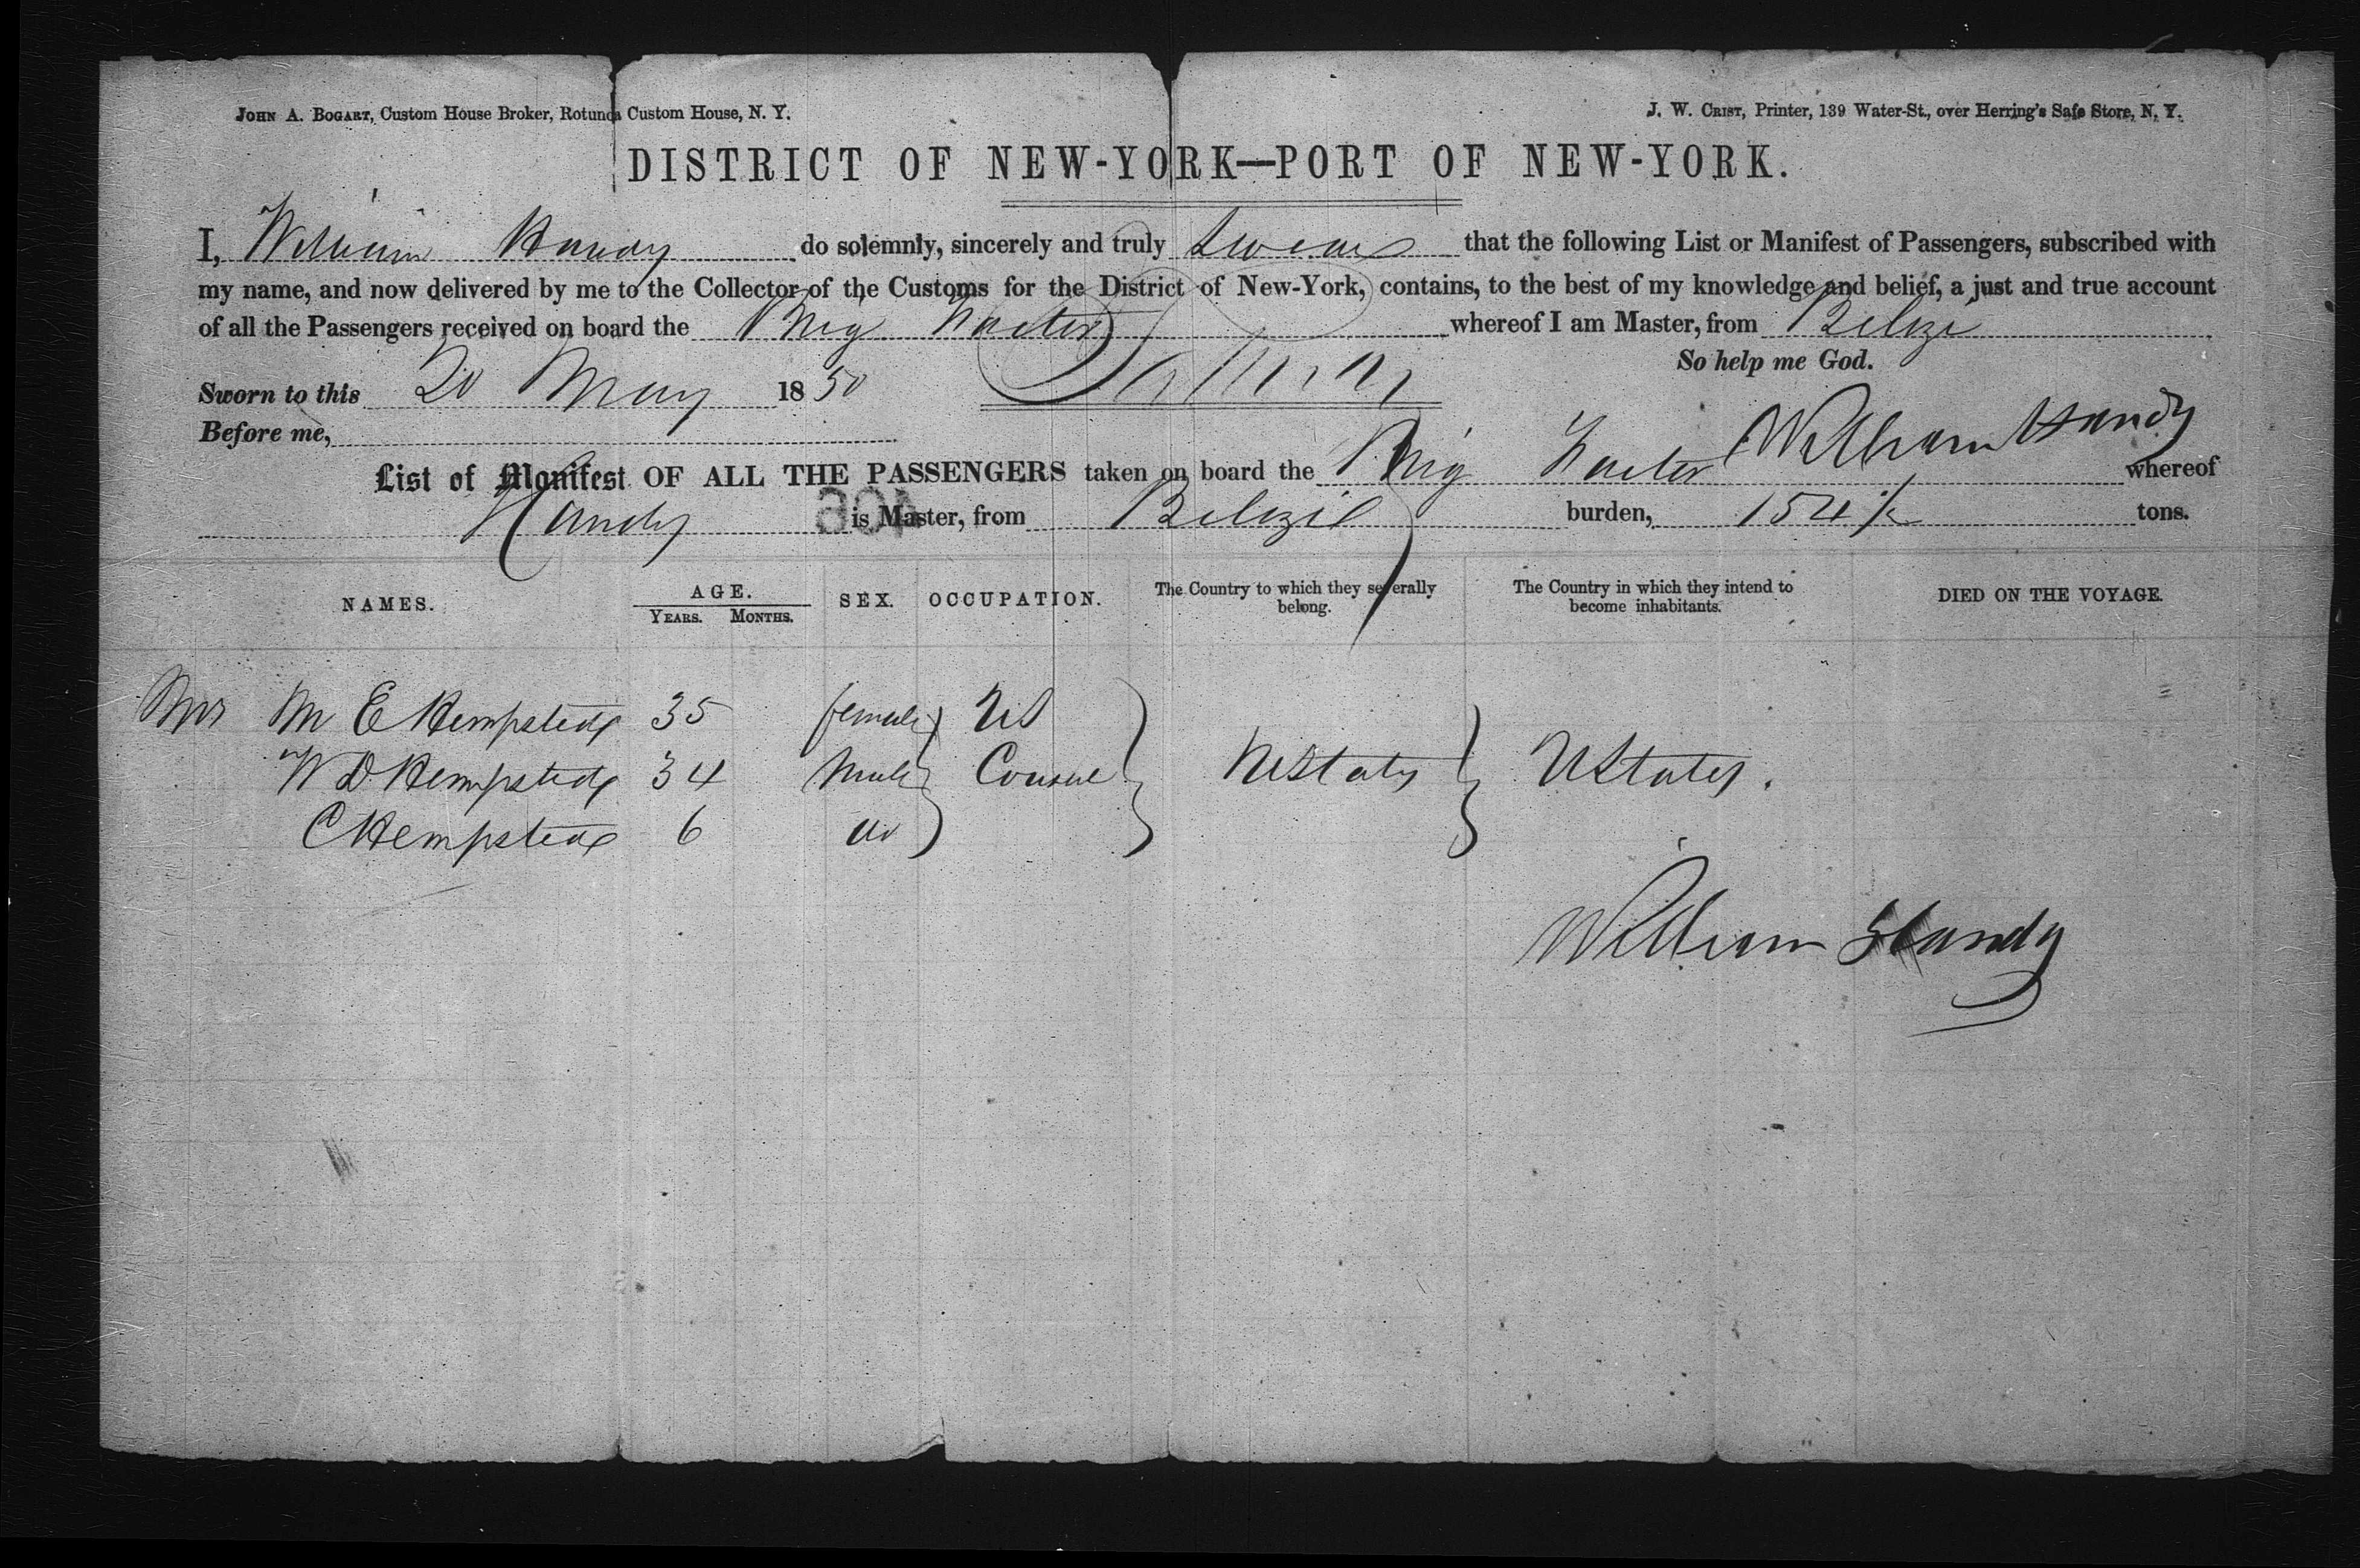 JOHN A. BOGART, Custom House Broker, Rotunda Custom House, N. Y.
J. W. CRIST, Printer, 139 Water-St., over Herring's Safe Store, N. Y.
DISTRICT OF NEW-YORK—PORT OF NEW-YORK.
I, William Handy do solemnly, sincerely and truly swear that the following List or Manifest of Passengers, subscribed with
my name, and now delivered by me to the Collector of the Customs for the District of New-York, contains, to the best of my knowledge and belief, a just and true account
of all the Passengers received on board the Brig whereof I am Master, from Belize
So help me God.
Sworn to this 20 May 1850
Before me,
William Handy
List of Manifest OF ALL THE PASSENGERS taken on board the Brig whereof
Handy is Master, from Belize burden, 154 tons.
NAMES. AGE. SEX. OCCUPATION. The Country to which they severally belong. The Country in which they intend to become inhabitants. DIED ON THE VOYAGE.
YEARS. MONTHS.
Mrs M E Hempstead 35 female US
W D Hempstead 34 Male Consul UStates UStates.
C Hempstead 6 do
William Handy